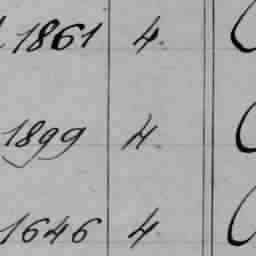 1861 4.
1899 4.
1646 4.